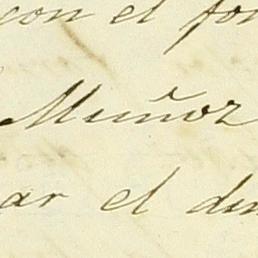 con el fon
Muñoz
ar el din